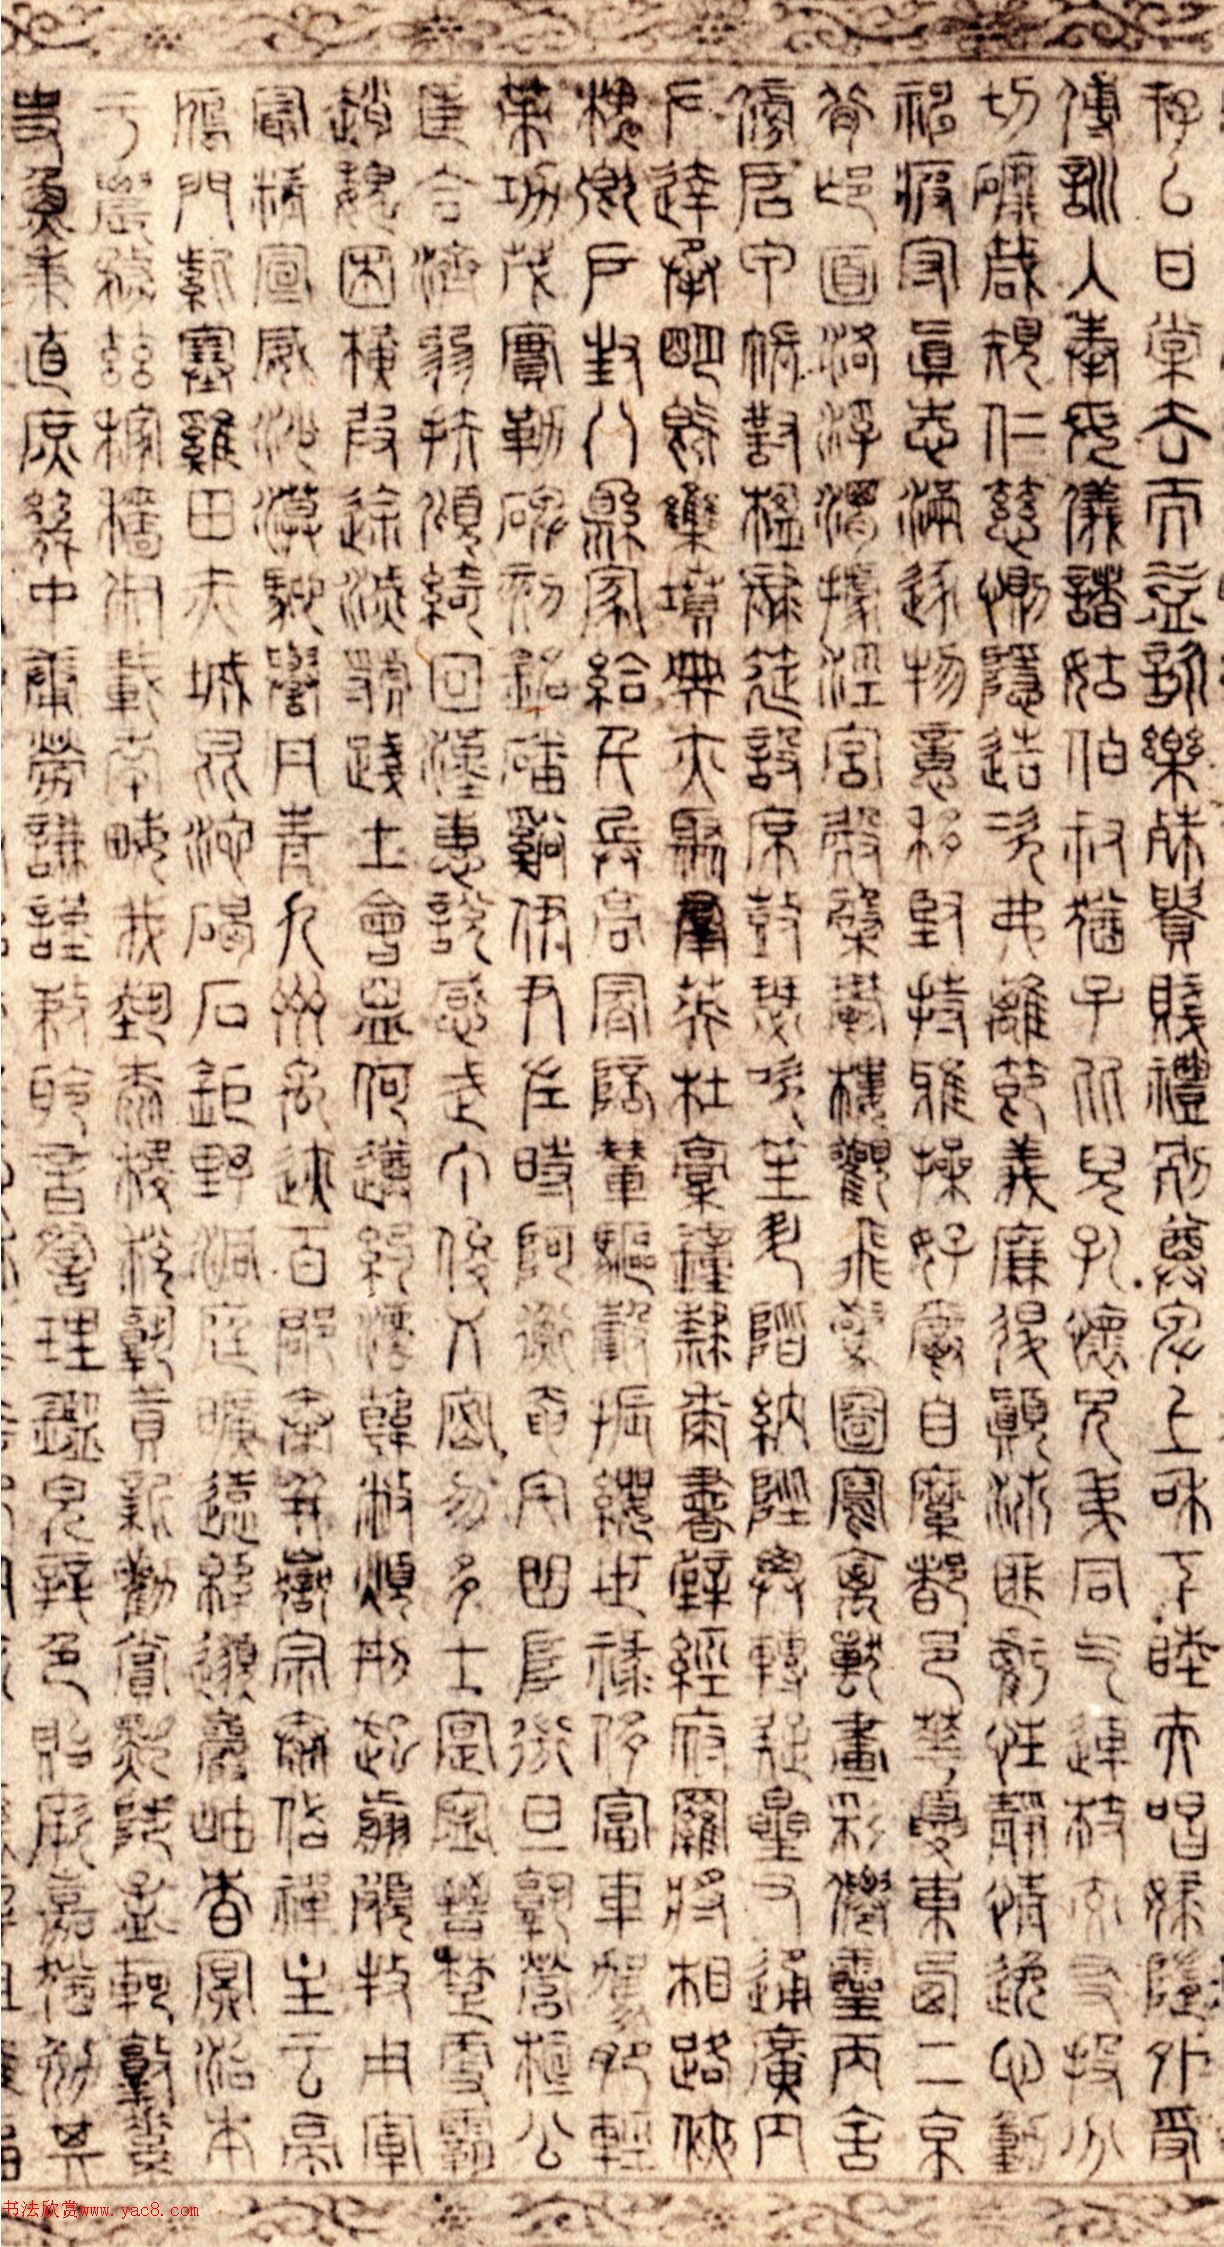 存以甘棠去而益詠樂殊貴賤禮別尊卑上和下睦夫唱婦隨外受
傅訓入奉母儀諸姑伯叔猶子比兒孔懷兄弟同氣連枝交友投分
切磨箴規仁慈惻隱造次弗離節義廉退顛沛匪虧性靜情逸心動
神疲守真志滿逐物意移堅持雅操好爵自縻都邑華夏東西二京
背邙面洛浮渭據涇宮殿盤鬱樓觀飛驚圖寫禽獸畫彩仙靈丙舍
傍啟甲帳對楹肆筵設席鼓瑟吹笙升階納陛弁轉疑星右通廣內
左達承明既集墳典亦聚群英杜稿鍾隸漆書壁經府羅將相路俠
槐卿戶封八縣家給千兵高冠陪輦驅轂振纓世祿侈富車駕肥輕
策功茂實勒碑刻銘磻溪伊尹佐時阿衡奄宅曲阜微旦孰營桓公
匡合濟弱扶傾綺回漢惠說感武丁俊乂密勿多士寔寧晉楚更霸
趙魏困橫假途滅虢踐土會盟何遵約法韓弊煩刑起翦頗牧用軍
最精宣威沙漠馳譽丹青九州禹跡百郡秦并嶽宗泰岱禪主云亭
雁門紫塞雞田赤城昆池碣石鉅野洞庭曠遠綿邈巖岫杳冥治本
于農務茲稼穡俶載南畝我藝黍稷稅熟貢新勸賞黜陟孟軻敦素
史魚秉直庶幾中庸勞謙謹敕聆音察理鑑貌辨色貽厥嘉猷勉其
书法欣赏www.yac8.com